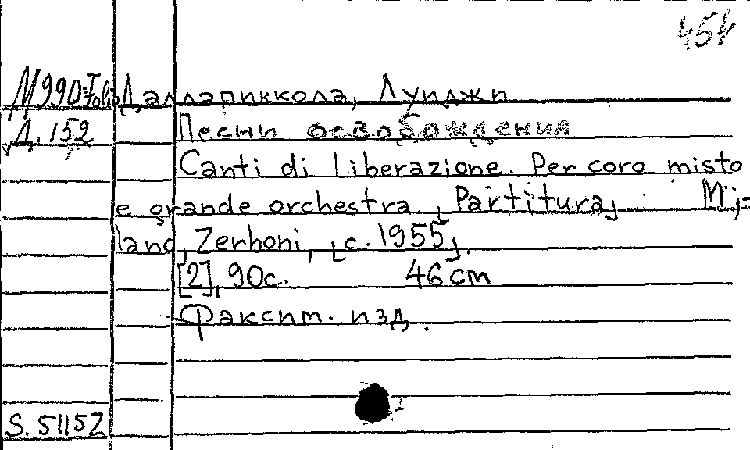 454
М990 Далларпиккола, Луиджи
Д.159 Песни освобождения
Canti di liberazione. Per coro misto
e grande orchestra [Partitura] Mi=
lano, Zerboni, [c. 1955].
[2], 90с. 46 cm
Факсим. изд.
S. 51152